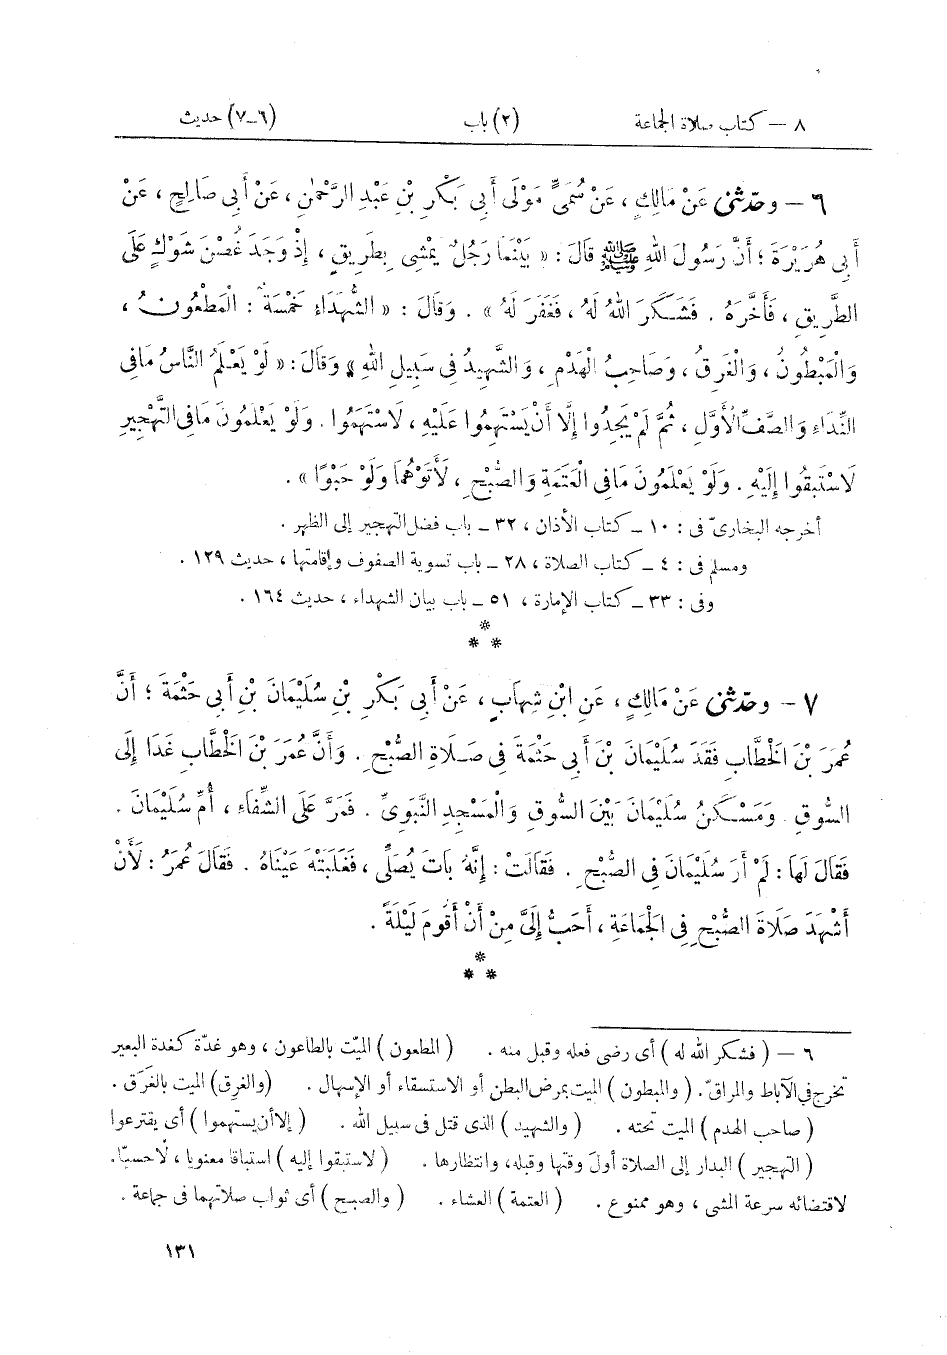 ٨ – كتاب صلاة الجماعة (٢) باب (٦–٧) حديث
٦ – وحدّثنى عَنْ مَالِكٍ ، عَنْ سُمَىٍّ مَوْلَى أَبِى بَكْرِ بْنِ عَبْدِ الرَّحْمٰنِ ، عَنْ أَبِى صَالِحٍ ، عَنْ
أَبِى هُرَيْرَةَ ؛ أَنَّ رَسُولَ اللهِ ﷺ قَالَ : « بَيْنَمَا رَجُلٌ يَمْشِى بِطَرِيقٍ ، إِذْ وَجَدَ غُصْنَ شَوْكٍ عَلَى
الطَّرِيقِ ، فَأَخَّرَهُ . فَشَكَرَ اللهُ لَهُ ، فَغَفَرَ لَهُ » . وَقَالَ : « الشُّهَدَاءِ خَمْسَةٌ : الْمَطْعُونُ ،
وَالْمَبْطُونُ ، وَالْغَرِقُ ، وَصَاحِبُ الْهَدْمِ ، وَالشَّهِيدُ فِى سَبِيلِ اللهِ » وَقَالَ : « لَوْ يَعْلَمُ النَّاسُ مَا فِى
النِّدَاءِ وَالصَّفِّ الْأَوَّلِ ، ثُمَّ لَمْ يَجِدُوا إِلَّا أَنْ يَسْتَهِمُوا عَلَيْهِ ، لَاسْتَهَمُوا . وَلَوْ يَعْلَمُونَ مَا فِى التَّهْجِيرِ
لَاسْتَبَقُوا إِلَيْهِ . وَلَوْ يَعْلَمُونَ مَا فِى الْعَتَمَةِ وَالصُّبْحِ ، لَأَتَوْهُمَا وَلَوْ حَبْوًا » .
أخرجه البخارىّ فى : ١٠ – كتاب الأذان ، ٣٢ – باب فضل التهجير إلى الظهر .
ومسلم فى : ٤ – كتاب الصلاة ، ٢٨ – باب تسوية الصفوف وإقامتها ، حديث ١٢٩ .
وفى : ٣٣ – كتاب الإمارة ، ٥١ – باب بيان الشهداء ، حديث ١٦٤ .
*
* *
٧ – وحدّثنى عَنْ مَالِكٍ ، عَنِ ابْنِ شِهَابٍ ، عَنْ أَبِى بَكْرِ بْنِ سُلَيْمَانَ بْنِ أَبِى حَثْمَةَ ؛ أَنَّ
عُمَرَ بْنَ الْخَطَّابِ فَقَدَ سُلَيْمَانَ بْنَ أَبِى حَثْمَةَ فِى صَلَاةِ الصُّبْحِ . وَأَنَّ عُمَرَ بْنَ الْخَطَّابِ غَدَا إِلَى
السُّوقِ . وَمَسْكَنُ سُلَيْمَانَ بَيْنَ السُّوقِ وَالْمَسْجِدِ النَّبَوِىِّ . فَمَرَّ عَلَى الشِّفَاءِ ، أُمِّ سُلَيْمَانَ .
فَقَالَ لَهَا : لَمْ أَرَ سُلَيْمَانَ فِى الصُّبْحِ . فَقَالَتْ : إِنَّهُ بَاتَ يُصَلِّى ، فَغَلَبَتْهُ عَيْنَاهُ . فَقَالَ عُمَرُ : لَأَنْ
أَشْهَدَ صَلَاةَ الصُّبْحِ فِى الْجَمَاعَةِ ، أَحَبُّ إِلَىَّ مِنْ أَنْ أَقُومَ لَيْلَةً .
*
* *
٦ – ( فشكر الله له ) أى رضى فعله وقبل منه . ( المطعون ) الميّت بالطاعون ، وهو غدّة كغدة البعير
تخرج فى الآباط والمراقّ . ( والمبطون ) الميت بمرض البطن أو الاستسقاء أو الإسهال . (والغرق) الميت بالغَرَق .
( صاحب الهدم ) الميت تحته . ( والشهيد ) الذى قتل فى سبيل الله . ( إلا أن يستهموا ) أى يقترعوا
( التهجير ) البدار إلى الصلاة أولَ وقتها وقبله، وانتظارها . ( لاستبقوا إليه ) استباقا معنويا ، لاحسيّا .
لاقتضائه سرعة المشى ، وهو ممنوع . ( العتمة ) العشاء . ( والصبح ) أى ثواب صلاتهما فى جماعة .
١٣١